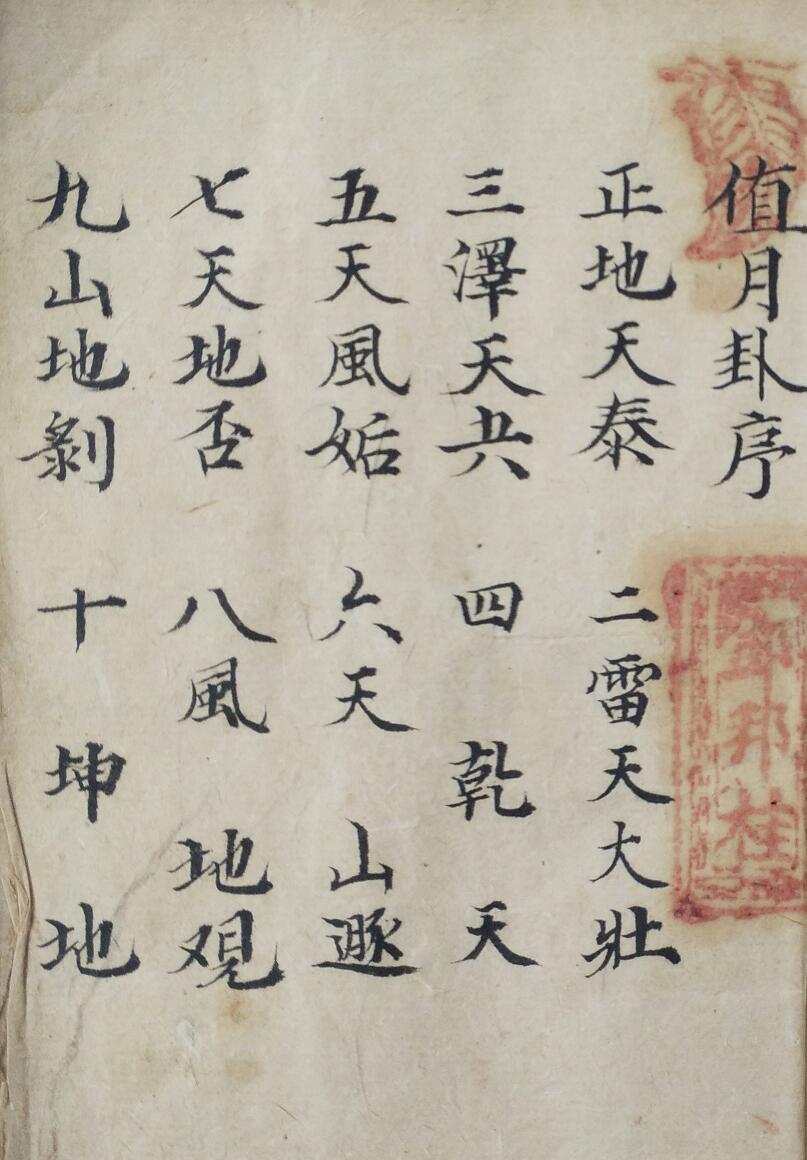 值月卦序
正地天泰 二雷天大壯
三澤天夬 四乾天
五天風姤 六天山遯
七天地否 八風地观
九山地剝 十坤地
邦桂